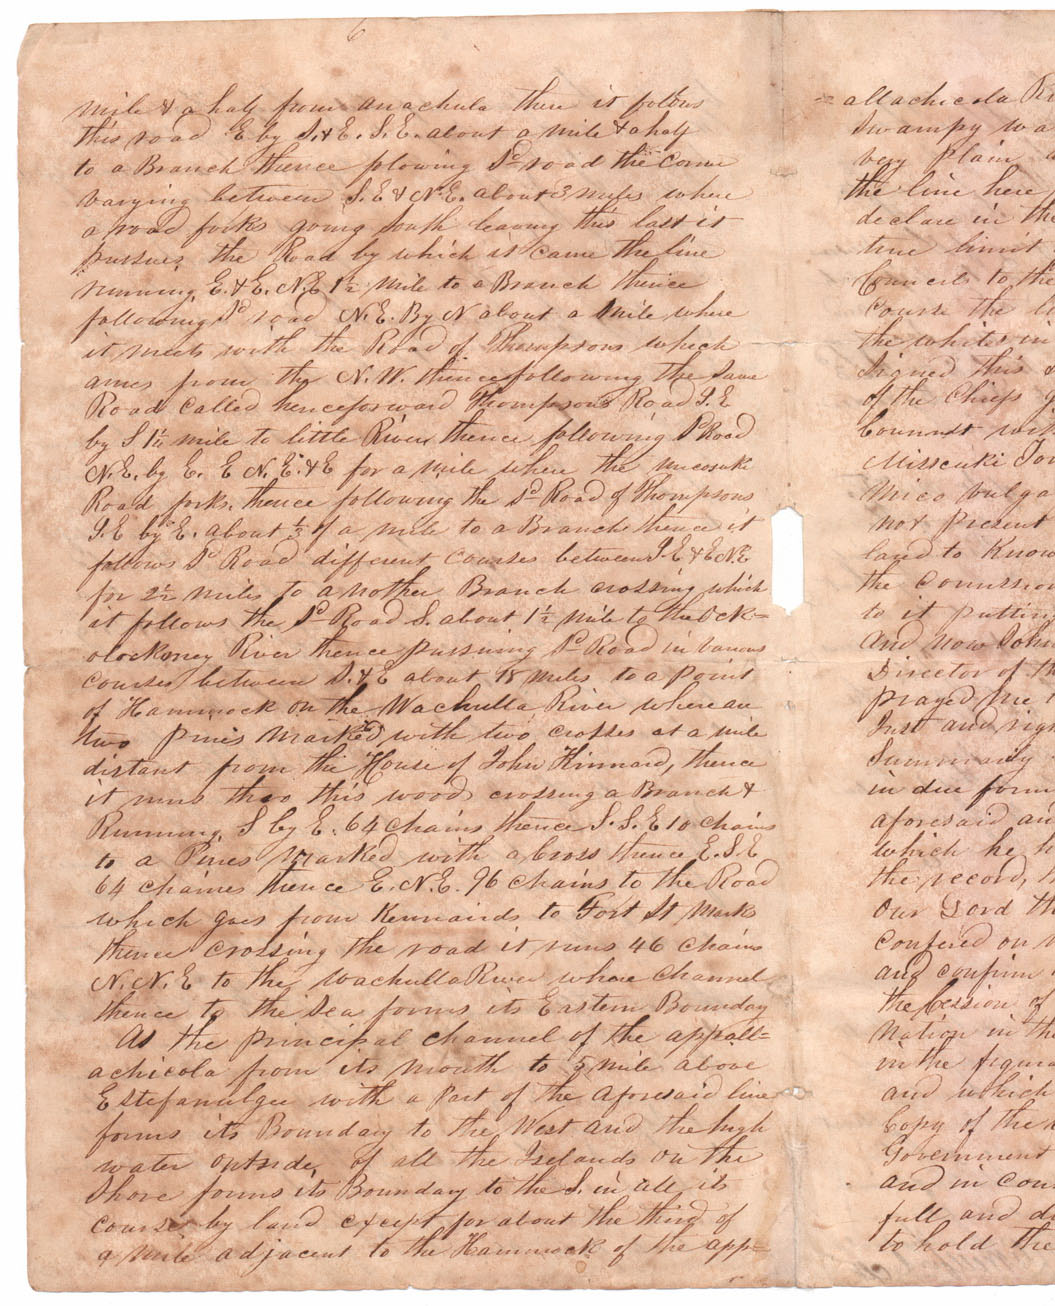 6
mile & a half from anachula then it follows
this road E by S. & E. S. E. about a mile & a half
to a Branch thence folowing Sd road the Corse
varying between S. E & N. E. about 3 miles where
a road forks going South leaving this last it
pursues the Road by which it came the line
running E. & E. N. E 1½ mile to a Branch thence
following Sd road N. E. By N about a Mile where
it meets with the Road of Thompsons which
ames from the N. W. thence following the Same
Road called henceforward Thompsons Road S. E
by S 1½ mile to little River, thence following Sd Road
N. E. by E. E N. E. & E for a mile where the micosuki
Road forks, thence following the Sd Road of Thompsons
S. E by E. about ⅓ of a mile to a Branch thence it
follows Sd Road different courses between S. E & E N E
for 2½ miles to a nother Branch crossing which
it follows the Sd Road S. about 1½ mile to the Ock=
olockney River thence pursuing Sd Road in various
courses between S. & E about 18 miles to a Point
of Hammock on the Wachulla River where are
two pines marked with two crosses at a mile
distant from the House of John Kinnard, thence
it runs throo this wood crossing a Branch &
Running S by E. 64 chains thence S. S. E 10 chains
to a Pines Marked with a Cross thence E. S. E
64 chaines thence E. N. E. 96 chains to the Road
which goes from Kennairds to Fort St Marks
thence crossing the road it runs 46 chains
N. N. E to the wachulla River whose channel
thence to the Sea forms its Eastern Bounday
As the principal channel of the appall=
achicola from its mouth to 5 mile above
Estefanulgee with a Part of the aforesaid line
forms its Boundary to the West and the high
water outside of all the Iselands on the
Shore forms its Boundary to the S. in all its
course by land except for about the third of
a mile adjacent to the Hammock of the app=
= allachicola Ri
Swampy wa
very plain
the line here
declare in th
true limit
Councils to the
Course the li
the whites in
Signed this
of the Chiefs
Missuki Tow
Mico vulga
not present
land to know
the Comission
to it putting
And now John
Director of th
prayed me
Just and righ
Summarily
in due form
aforesaid an
which he h
the record,
Our Lord th
Confered on
and confirm
the Cession of
Nation in the
in the figura
and which
Copy of the
Government
and in cons
full and d
to hold the